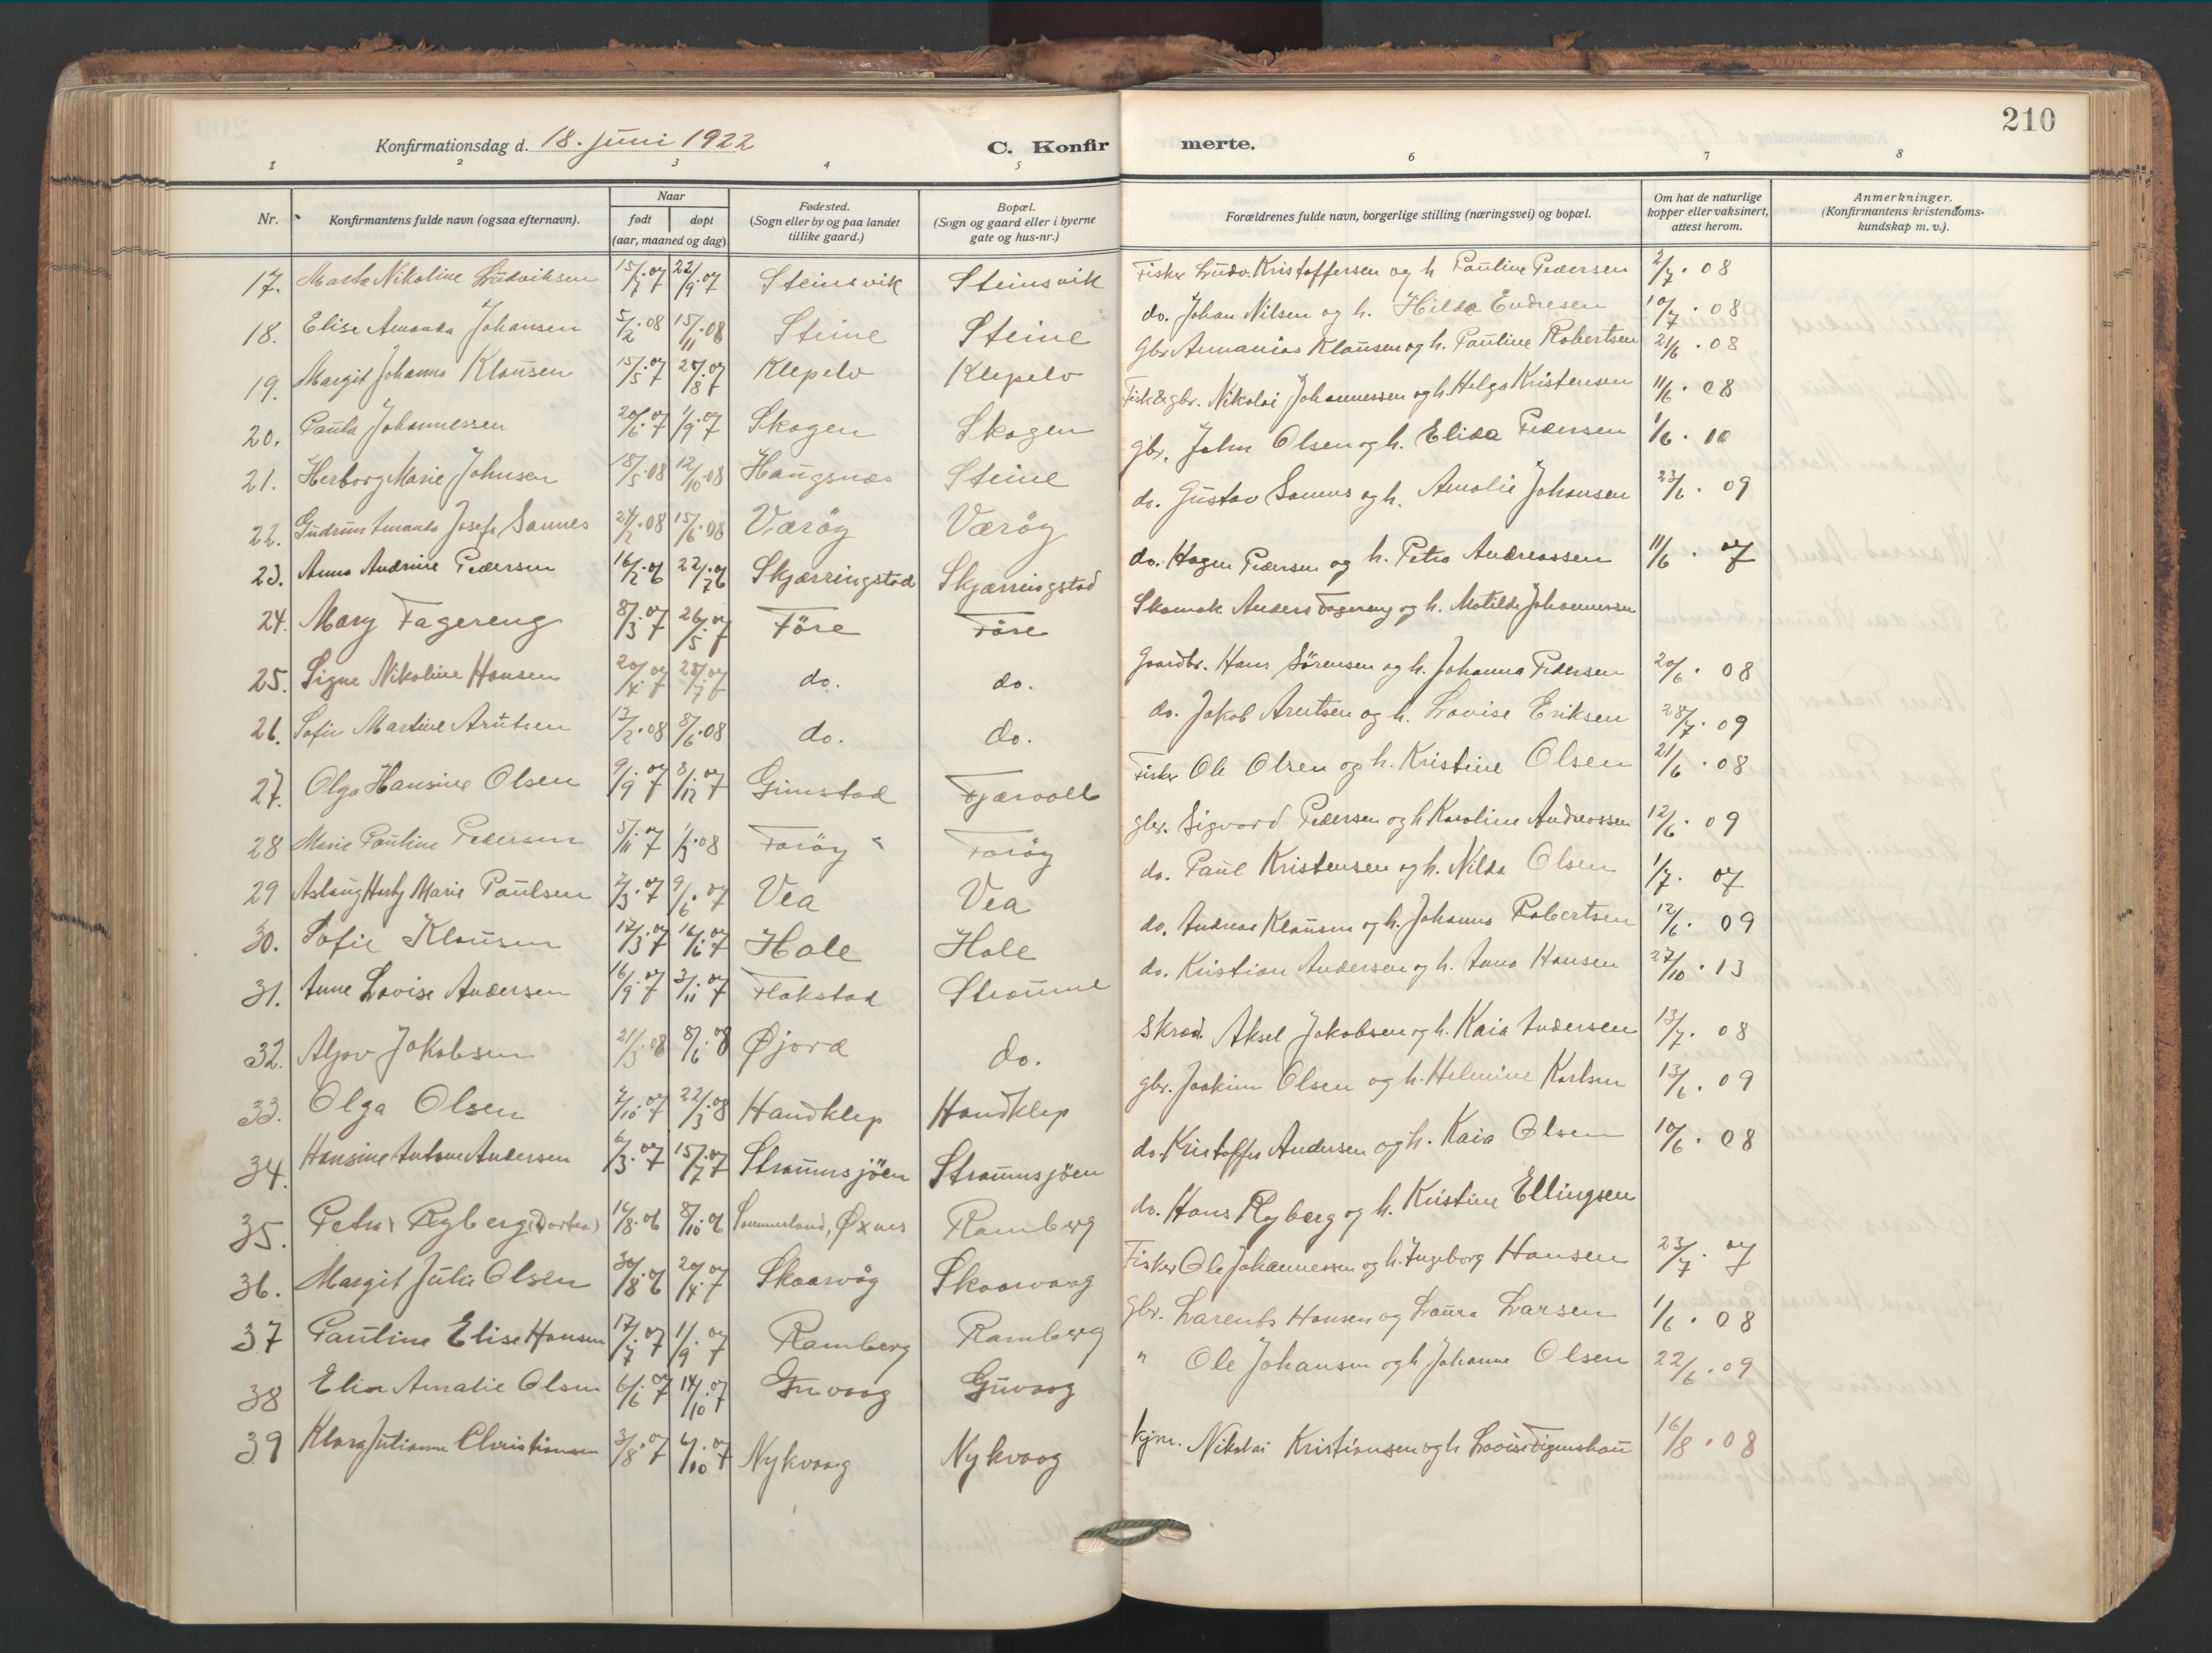 210
Konfirmationsdag d. 18. juni 1922 C. Konfirmerte.
1 2 3 4 5 6 7 8
Nr. Konfirmantens fulde navn (ogsaa efternavn). Naar født døpt (aar, maaned og dag) Fødested. (Sogn eller by og paa landet tillike gaard.) Bopæl. (Sogn og gaard eller i byerne gate og hus-nr.) Forældrenes fulde navn, borgerlige stilling (næringsvei) og bopæl. Om hat de naturlige kopper eller vaksinert, attest herom. Anmerkninger. (Konfirmantens kristendoms-kundskap m. v.).
17. Marta Nikoline Ludviksen 15/7.07 22/9.07 Steinsvik Steinsvik Fisker Ludv. Kristoffersen og h. Pauline Pedersen 2/7.08
18. Elise Amanda Johansen 5/2.08 15/11.08 Steine Steine do. Johan Nilsen og h. Hilda Endresen 10/7.08
19. Margit Johanna Klausen 15/5.07 25/8.07 Klepelv Klepelv Gbr. Annanias Klausen og h. Pauline Robertsen 21/6.08
20. Paula Johannessen 20/6.07 1/9.07 Skogen Skogen Fisk & gbr. Nikolai Johannessen og h. Helga Kristensen 11/6.08
21. Herborg Marie Johnsen 18/5.08 12/10.08 Haugsnes Steine gbr. John Olsen og h. Elida Pedersen 1/6.10
22. Gudrun Amanda Josefa Sannes 24/2.08 15/6.08 Værøy Værøy do. Gustav Sannes og h. Amalie Johansen 23/6.09
23. Anna Andrine Pedersen 16/2.06 22/7.06 Skjærringstad Skjærringstad do. Hagen Pedersen og h. Petra Andreassen 11/6.07
24. Mary Fagereng 8/3.07 26/5.07 Före Före Skomak Anders Fagereng og h. Matilde Johannessen
25. Signe Nikoline Hansen 20/4.07 28/7.07 do. do. Gaardbr. Hans Sörensen og h. Johanna Pedersen 20/6.08
26. Sofie Martine Arntsen 12/2.08 8/6.08 do. do. do. Jakob Arntsen og h. Lovise Eriksen 28/7.09
27. Olga Hansine Olsen 9/9.07 8/12.07 Grimstad Fjærvoll Fisker Ole Olsen og h. Kristine Olsen 21/6.08
28 Marie Pauline Pedersen 5/11.07 1/3.08 Forøy Forøy gbr. Sigvard Pedersen og h Karoline Andreassen 12/6.09
29 Aslaug Marie Paulsen 2/3.07 9/6.07 Vea Vea do. Paul Kristensen og h. Nilda Olsen 1/7.07
30. Sofie Klausen 17/3.07 16/6.07 Hole Hole do. Andreas Klausen og h. Johanna Robertsen 12/6.09
31. Anne Lovise Andersen 16/9.07 3/11.07 Flakstad Straume do. Kristian Andersen og h. Anna Hansen 27/10.13
32. Aljov Jakobsen 21/3.08 8/6.08 Øjord do. Skred. Aksel Jakobsen og h. Kaia Andersen 13/7.08
33. Olga Olsen 2/10.07 22/3.08 Handklep Handklep gbr. Joakim Olsen og h. Helmine Karlsen 13/6.09
34. Hansine Antone Andersen 6/3.07 15/7.07 Straumsjöen Straumsjöen do. Kristoffer Andersen og h. Kaia Olsen 10/6.08
35. Petra Ryberg (Dortea) 16/8.06 8/10.06 Sommerland, Øxnes Ramberg do. Hans Ryberg og h. Kristine Ellingsen
36. Margit Julie Olsen 30/8.06 20/4.07 Skaarvåg Skaarvaag Fisker Ole Johannessen og h. Ingeborg Hansen 23/7.07
37 Pauline Elise Hansen 17/7.07 1/9.07 Ramberg Ramberg gbr. Larents Hansen og Laura Larsen 1/6.08
38 Elin Amalie Olsen 6/6.07 14/10.07 Guvaag Guvaag " Ole Johansen og h Johanne Olsen 22/6.09
39 Klara Julianne Christiansen 3/8.07 6/10.07 Nykvaag Nykvaag kjm. Nikolai Kristiansen og h Lovise Figenschau 16/8.08